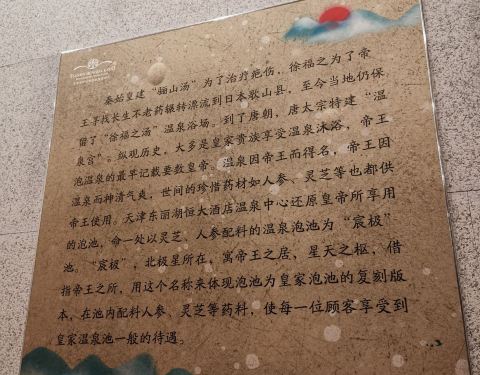 秦始皇建“骊山汤”为了治疗疮伤，徐福之为了帝
王寻找长生不老药辗转漂流到日本歌山县，至今当地仍保
留了“徐福之汤”温泉浴场。到了唐朝，唐太宗特建“温
泉宫”。纵观历史，大多是皇家贵族享受温泉沐浴，帝王
泡温泉的最早记载要数皇帝。温泉因帝王而得名，帝王因
温泉而神清气爽，世间的珍惜药材如人参、灵芝等也都供
帝王使用。天津东丽湖恒大酒店温泉中心还原皇帝所享用
的泡池，命一处以灵芝、人参配料的温泉泡池为“宸极”
池。“宸极”，北极星所在，寓帝王之居，星天之枢，借
指帝王之所，用这个名称来体现泡池为皇家泡池的复刻版
本，在池内配料人参、灵芝等药料，使每一位顾客享受到
皇家温泉池一般的待遇。